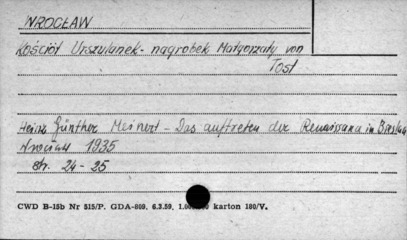 WROCŁAW
Kościół Urszulanek - nagrobek Małgorzaty von
Tost
Heinz Günther Meinert - Das auftreten der Renaissance in Breslau
Wrocław 1935
str. 24-25
CWD B-15b Nr 515/P. GDA-809. 6.3.59. karton 180/V.